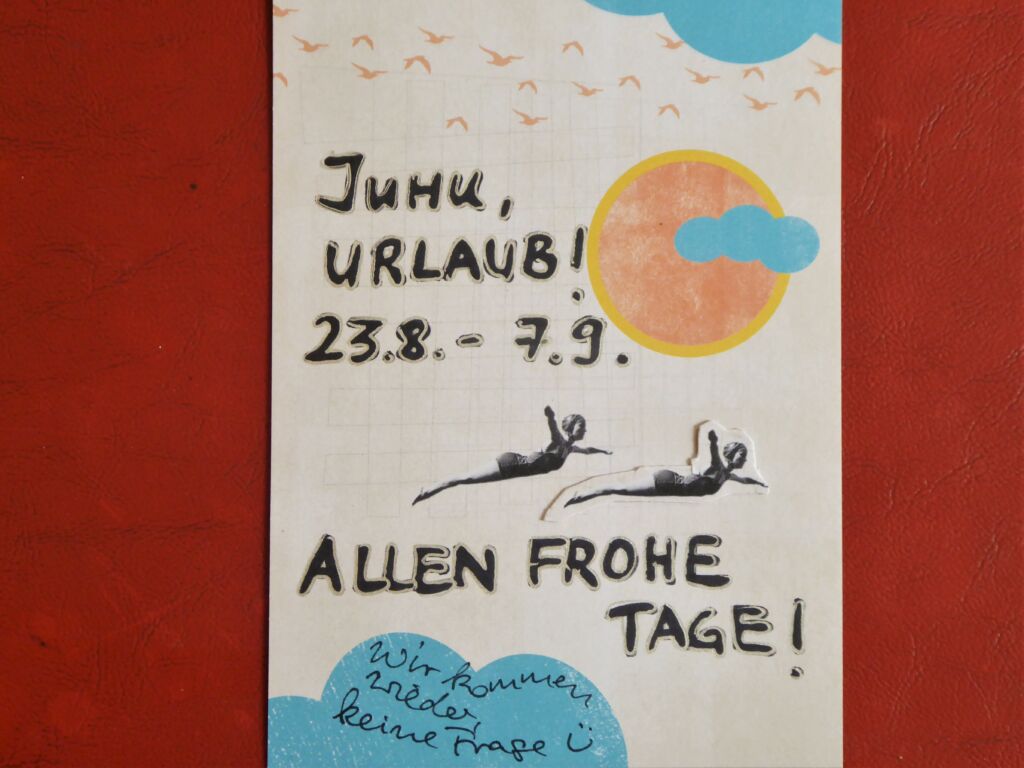 JUHU,
URLAUB!
23.8.- 7.9.
ALLEN FROHE
TAGE!
Wir kommen
wieder,
keine Frage Ü